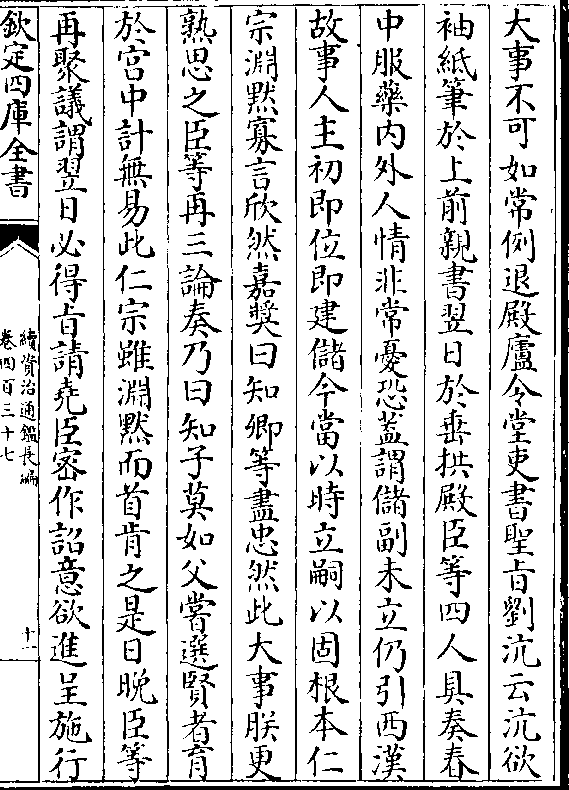 大事不可如常例退殿廬令堂吏書聖旨劉沆云沆欲
袖紙筆於上前親書翌日於垂拱殿臣等四人具奏春
中服藥内外人情非常憂恐蓋謂儲副未立仍引西漢
故事人主初即位即建儲今當以時立嗣以固根本仁
宗淵黙寡言欣然嘉奬曰知卿等盡忠然此大事朕更
熟思之臣等再三論奏乃曰知子莫如父嘗選賢者育
於宫中計無易此仁宗雖淵黙而首肯之是日晚臣等
再聚議謂翌日必得旨請堯臣宻作詔意欲進呈施行
欽定四庫全書
續資治通鑑長編
卷四百三十七
十一